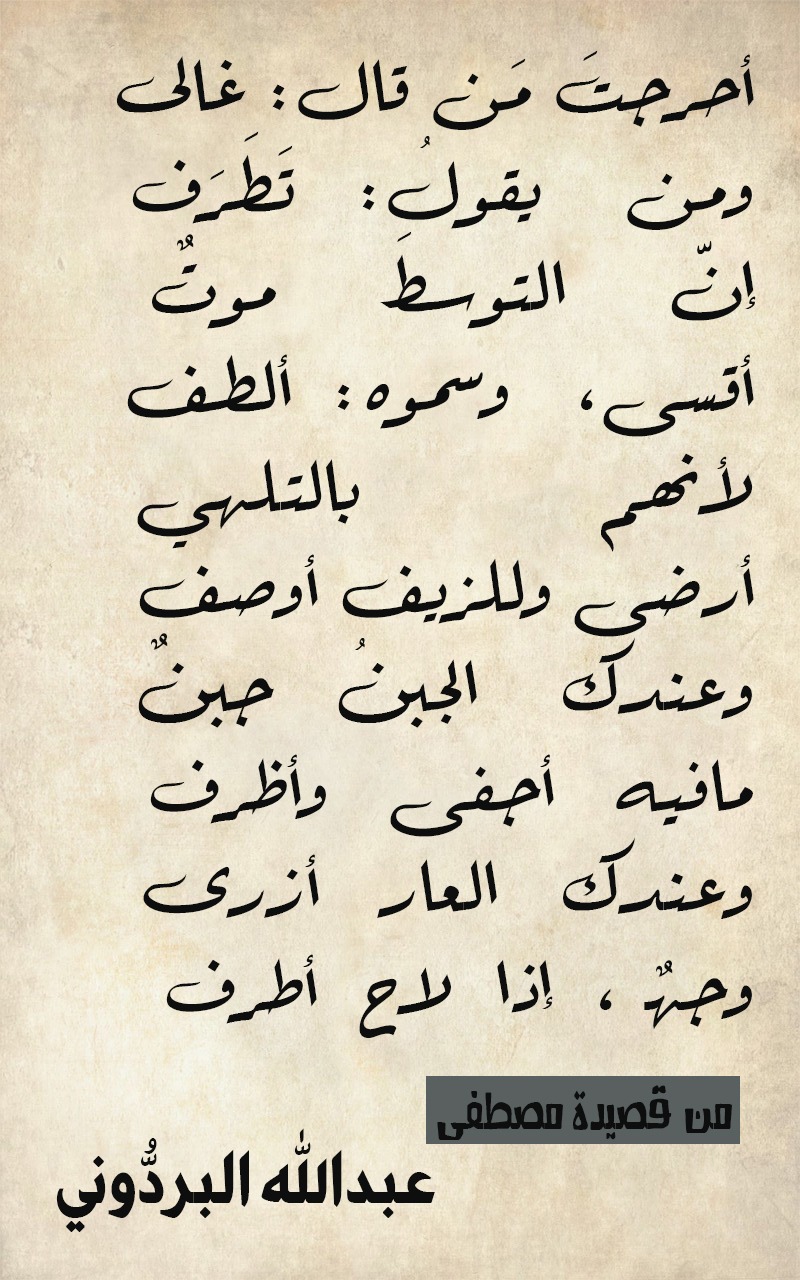 أحرجتَ مَن قال: غالى
ومن يقولُ: تَطَرَف
إنّ التوسطَ موتٌ
أقسى، وسموه: ألطف
لأنهم بالتلهي
أرضى وللزيف أوصف
وعندك الجبنُ جبنٌ
مافيه أجفى وأظرف
وعندك العار أزرى
وجهٌ ، إذا لاح أطرف
من قصيدة مصطفى
عبدالله البردُّوني